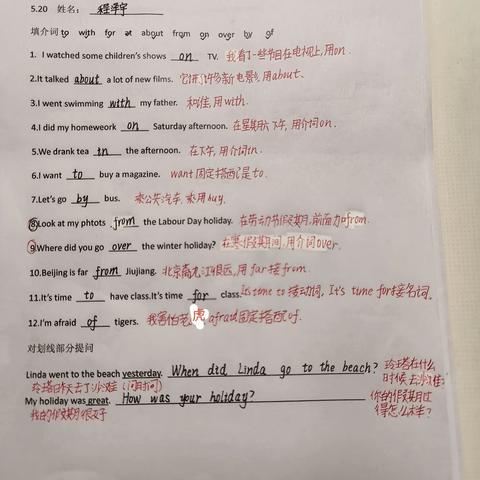 5.20 姓名: 程学宇
填介词 to with for at about from on over by of
1. I watched some children's shows on TV. 我看了一些节目在电视上,用on.
2.It talked about a lot of new films. 它讲了许多新电影,用about、
3.I went swimming with my father. 和谁,用with.
4.I did my homeweork on Saturday afternoon. 在星期六下午,用介词on.
5.We drank tea in the afternoon. 在下午,用介词in.
6.I want to buy a magazine. want固定搭配是to.
7.Let's go by bus. 乘公共汽车,乘用buy.
8.Look at my phtots from the Labour Day holiday. 在劳动节假期,前面加from.
9.Where did you go over the winter holiday? 在寒假期间,用介词over.
10.Beijing is far from Jiujiang. 北京离九江很远,用far接from.
11.It's time to have class.It's time for class. It's time to接动词, It's time for接名词.
12.I'm afraid of tigers. 我害怕老虎 afraid固定搭配of.
对划线部分提问
Linda went to the beach yesterday. When did Linda go to the beach? 玲塔在什么
玲塔昨天去了沙滩(问时间) 时候去沙滩?
My holiday was great. How was your holiday? 你的假期过
我的假期很好 得怎么样?